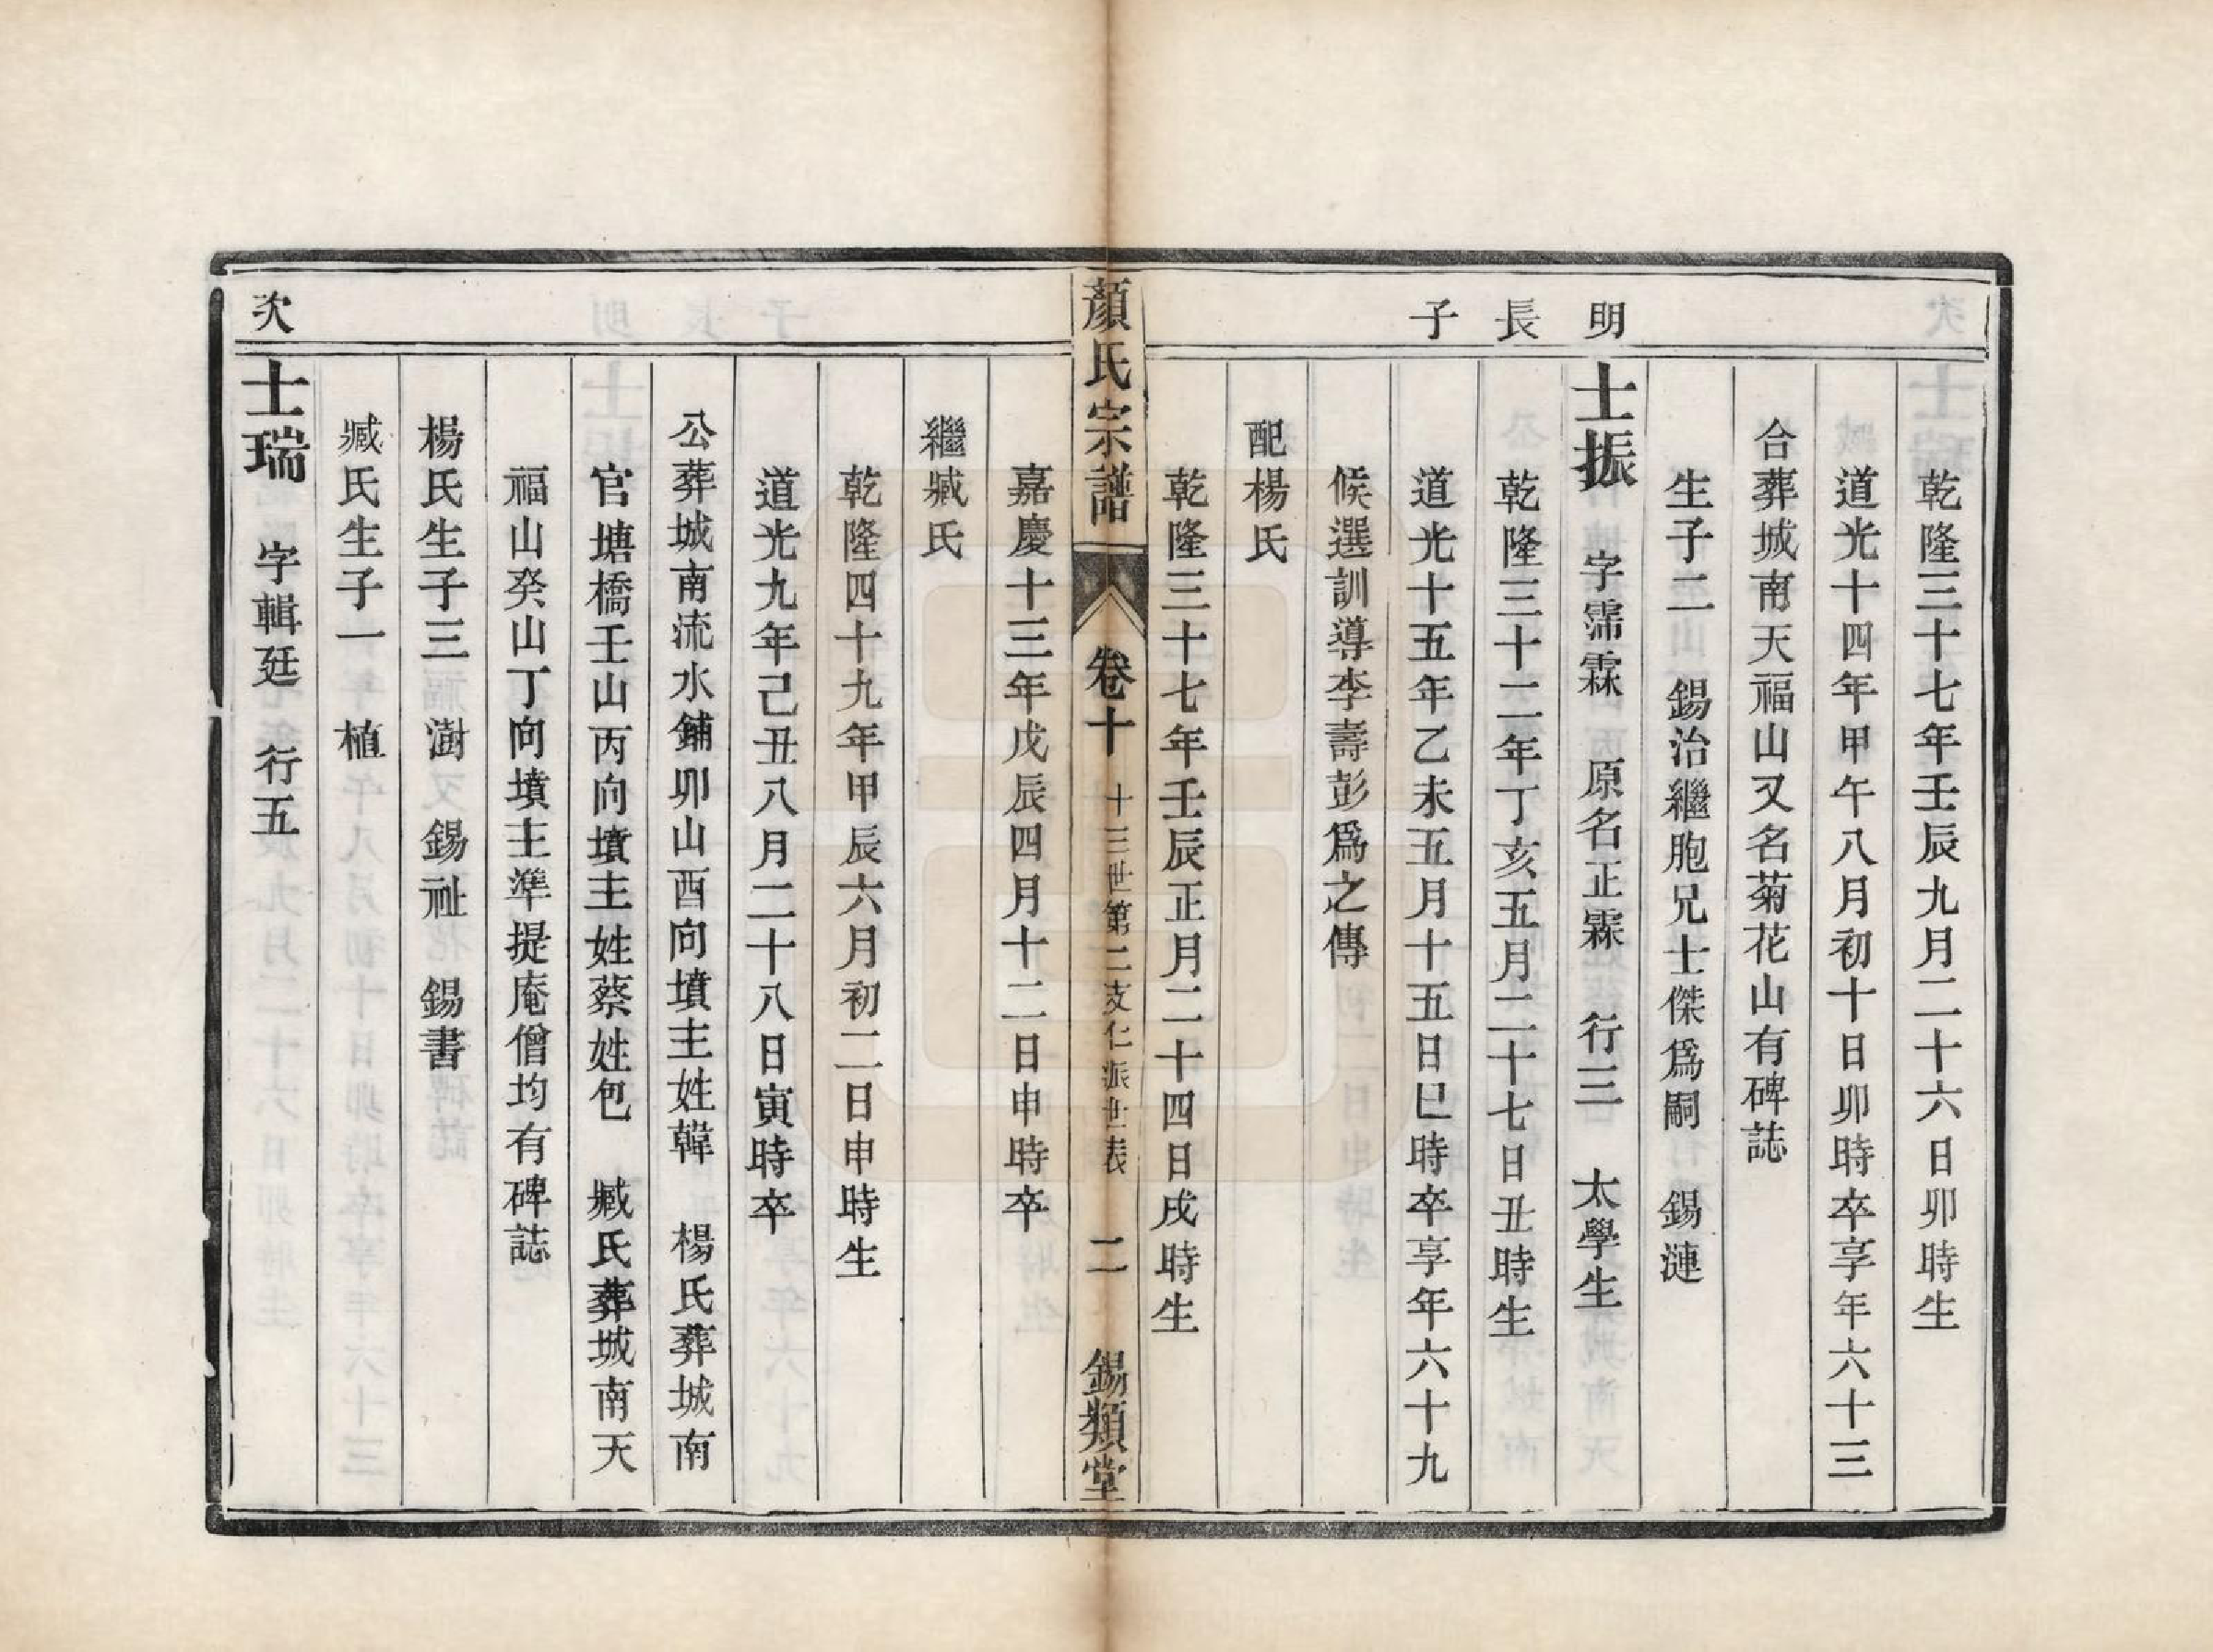 乾隆三十七年壬辰九月二十六日卯時生
道光十四年甲午八月初十日卯時卒享年六十三
合葬城南天福山又名菊花山有碑誌
生子二　錫治繼胞兄士傑爲嗣　錫漣
明長子
士振　字霈霖　原名正霖　行三　太學生
乾隆三十二年丁亥五月二十七日丑時生
道光十五年乙未五月十五日巳時卒享年六十九
候選訓導李壽彭爲之傳
配楊氏
乾隆三十七年壬辰正月二十四日戌時生
顏氏宗譜　卷十　十三世第二支仁派世表　二　錫類堂
嘉慶十三年戊辰四月十二日申時卒
繼臧氏
乾隆四十九年甲辰六月初二日申時生
道光九年己丑八月二十八日寅時卒
公葬城南流水鋪卯山酉向墳主姓韓　楊氏葬城南
官塘橋壬山丙向墳主姓蔡姓包　臧氏葬城南天
福山癸山丁向墳主準提庵僧均有碑誌
楊氏生子三　澍　錫祉　錫書
臧氏生子一　植
次
士瑞　字輯廷　行五